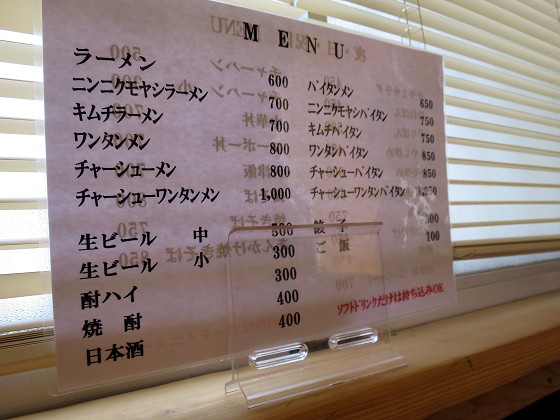 MENU
ラーメン 600
ニンニクモヤシラーメン 700
キムチラーメン 700
ワンタンメン 800
チャーシューメン 800
チャーシューワンタンメン 1,000
パイタンメン 650
ニンニクモヤシパイタン 750
キムチパイタン 750
ワンタンパイタン 850
チャーシューパイタン 850
チャーシューワンタンパイタン
生ビール 中 500
生ビール 小 300
酎ハイ 300
焼酎 400
日本酒 400
餃子 300
ご飯 100
ソフトドリンクだけは持ち込みOK